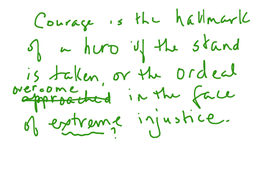 Courage is the hallmark
of a hero if the stand
is taken, or the ordeal
overcome
approached in the face
of extreme injustice.
?